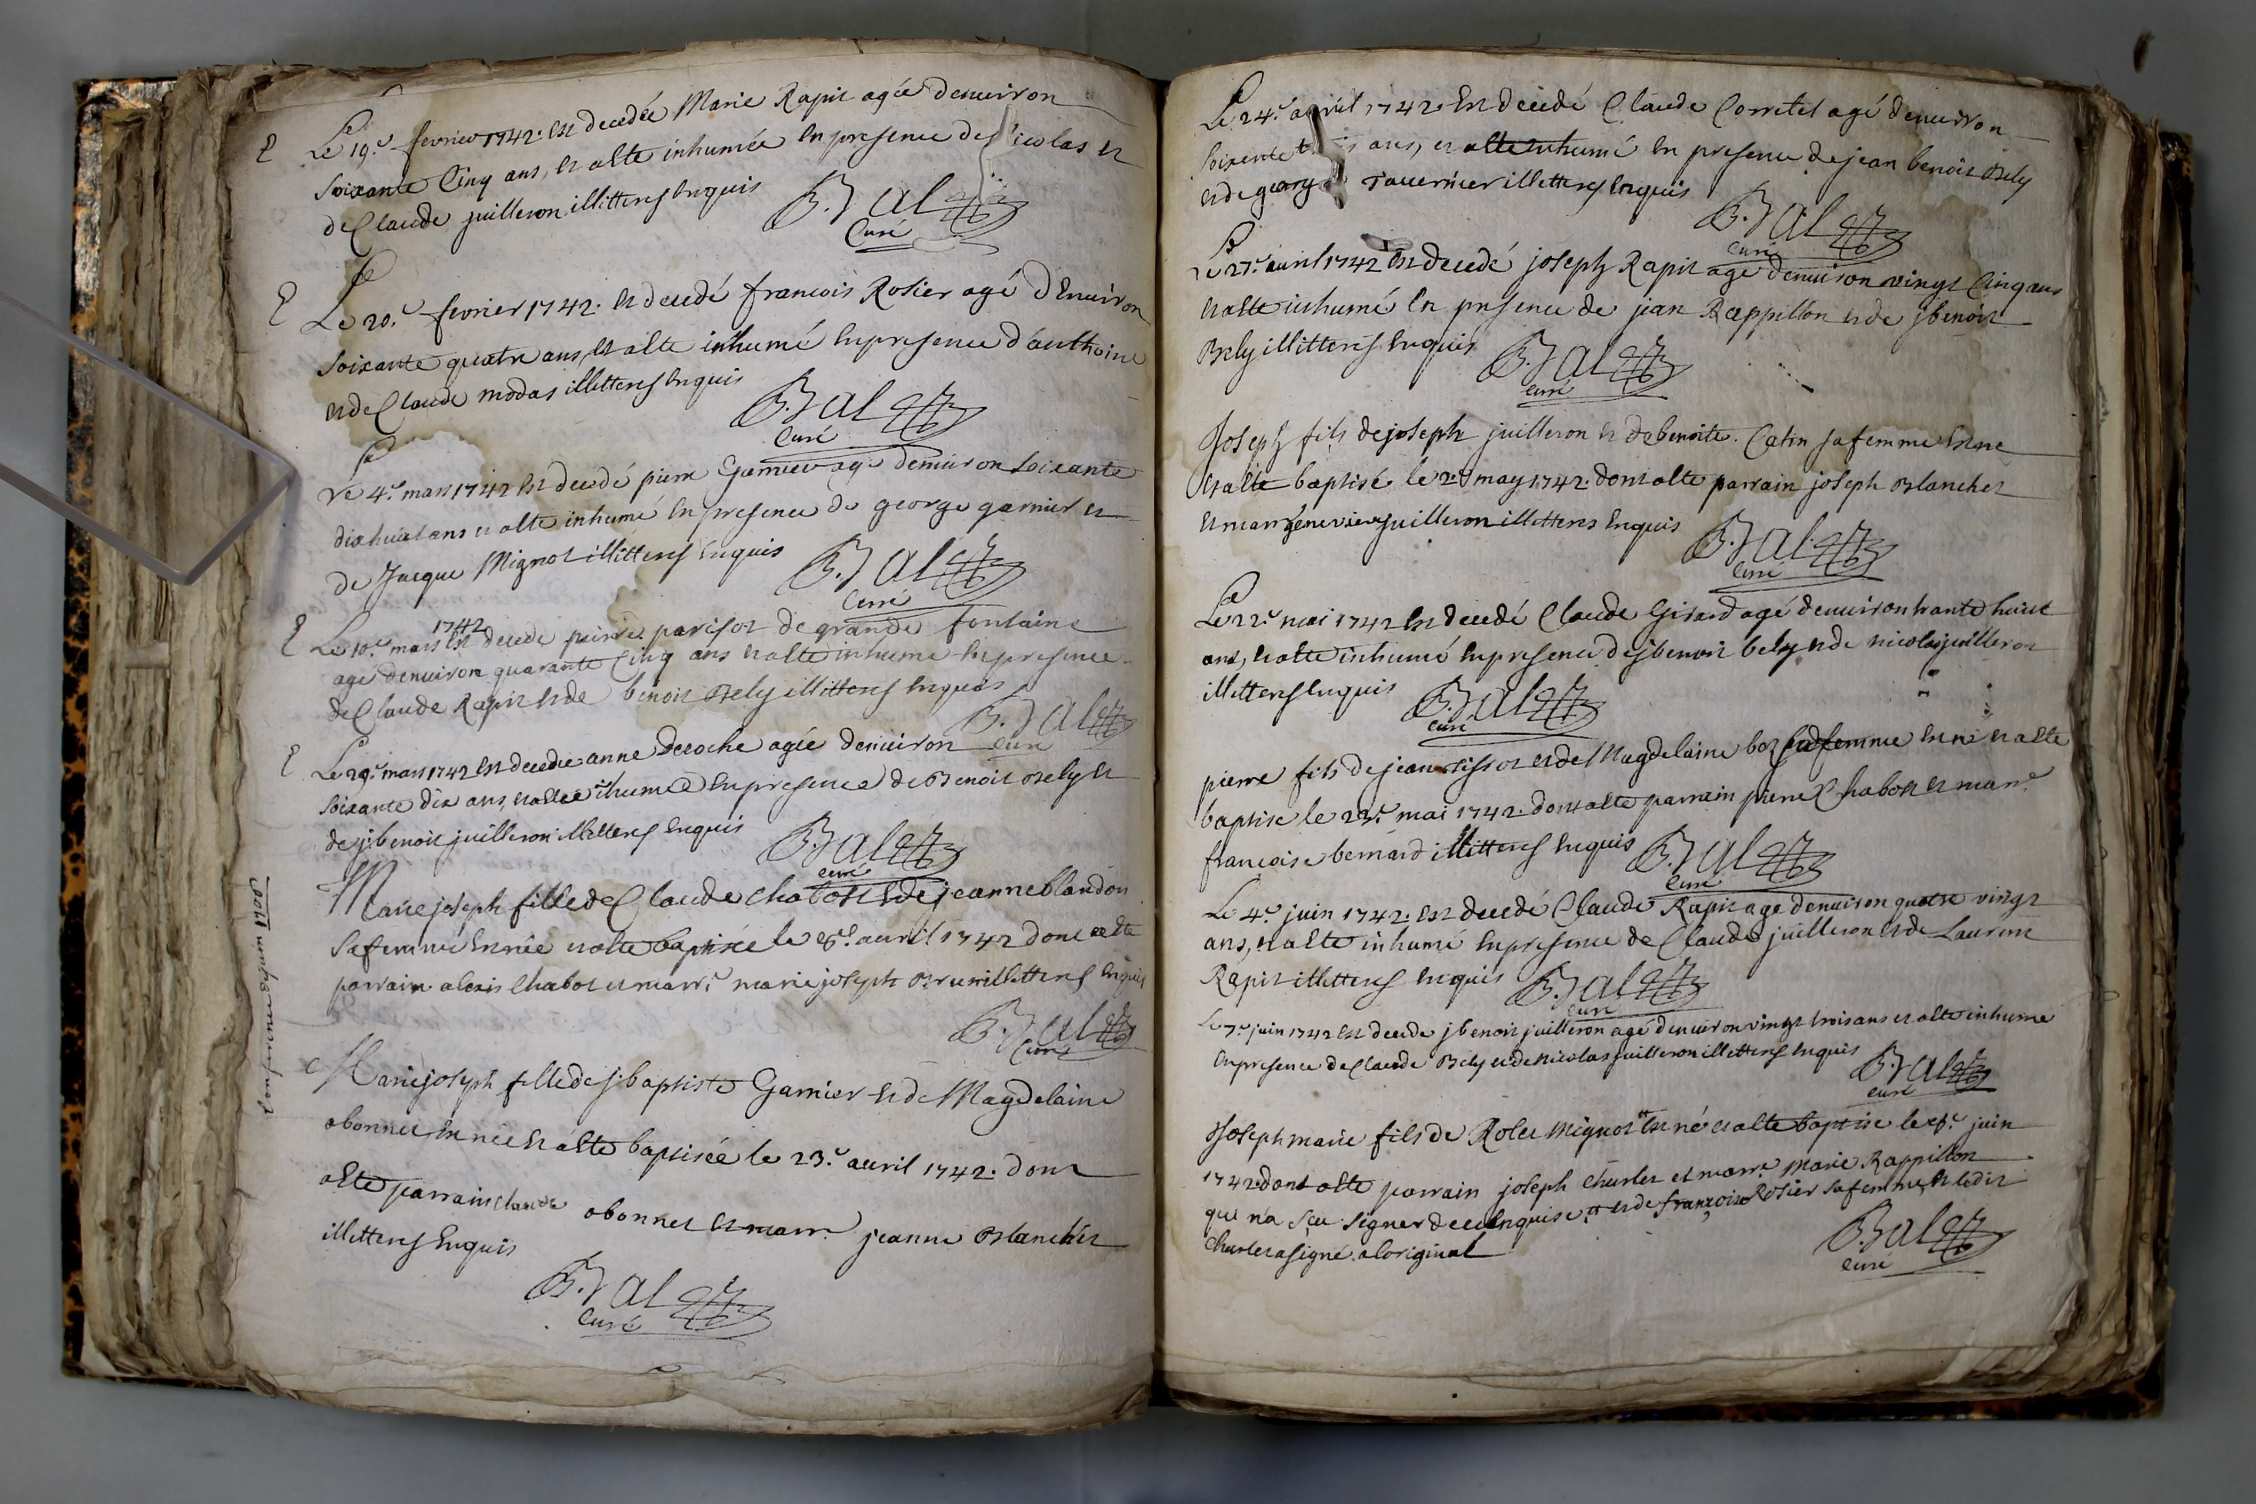 Le 19.e fevrier 1742. Est decedée Marie Rapit agée denuiron
soixante Cinq ans, et a ette inhumée En presence de Nicolas et
de Claude juilleron illitterés Enquis
B. Bal
Curé
Le 20.e fevrier 1742. Est decedé francois Rosier agé d'Enuiron
soixante quatre ans, Et a ette inhumé En presence d'anthoine
et de Claude modas illitterés Enquis
B. Bal
Curé
Le 4.e mars 1742 Est decedé pierre Garnier agé denuiron soixante
dix huict ans et a ette inhumé En presence de george garnier et
de Jacque Mignot illitterés Enquis
B. Bal
Curé
1742
Le 10.e mars Est decede pierre parisot de grande fontaine
agé denuiron quarante Cinq ans et a ette inhume En presence
de Claude Rapit et de benoit Bely illitterés Enquis
B. Bal
Curé
Le 29.e mars 1742 Est decedée anne Deroche agée denuiron
soixante dix ans, et a ettée ihumée En presence de Benoit Bely et
de j: benoit juilleron illitterés Enquis
B. Bal
Curé
Marie joseph fille de Claude Chabot et de jeanne blandon
sa femme Est née et a ette baptisée le auril 1742 dont a ette
parrain alexis Chabot et marr.e marie joseph Brun illitterés Enquis
B. Bal
Curé
Marie joseph fille de j: baptiste Garnier Et de Magdelaine
abonnel, Est née Et a ette baptisée le 23.e auril 1742. dont
a ette parrain Claude abonnel Et marr.e jeanne Blanchet
illitterés Enquis
B. Bal
Curé
Le 24.e avril 1742. Est decedé Claude Corretel agé denuiron
soixente ans, et a ette inhumé En presence de jean benoit Bely
et de Tauernier illitterés Enquis
B. Bal
Curé
Le 27.e auril 1742 Est decedé joseph Rapit agé denuiron vingt Cinq ans
et a ette inhumé En presence de jean Rappillon et de j benoit
Bely illitterés Enquis
B. Bal
Curé
Joseph fils de joseph juilleron Et de benoite. Catin sa femme Est né
Et a ette baptisé le may 1742. dont a ette parrain joseph Blanchet
Et marr: geneviève juilleron illitterés Enquis
B. Bal
Curé
Le 22.e mai 1742 Est decedé Claude Girard agé denuiron trante huict
ans, et a ette inhumé En presence de j benoit bely et de nicolas juilleron
illitterés Enquis
B. Bal
Curé
pierre fils de jean Tissot et de Magdelaine boz sa femme Est né et a ette
baptise le 23.e mai 1742. dont a ette parrain pierre Chabot et marr.e
francoise bernard illitterés Enquis
B. Bal
Curé
Le 4.e juin 1742. Est decedé Claude Rapit agé denuiron quatre vingt
ans, et a ette inhumé En presence de Claude juilleron et de Laurent
Rapit illitterés Enquis
B. Bal
Curé
Le 7.e juin 1742 Est decede j benoit juilleron age denuiron vingt trois ans et a ette inhume
En presence de Claude Bely et de nicolas juilleron illitterés Enquis
B. Bal
Curé
Joseph marie fils de Mignot Est né et a ette baptise le juin
1742. dont a ette parrain joseph Charles et marr.e Marie Rappillon
que n'a sçu signer de ce Enquise, et de françoise Rosier sa femme, Et ledit
Charles a signé a l'original
B. Bal
Curé